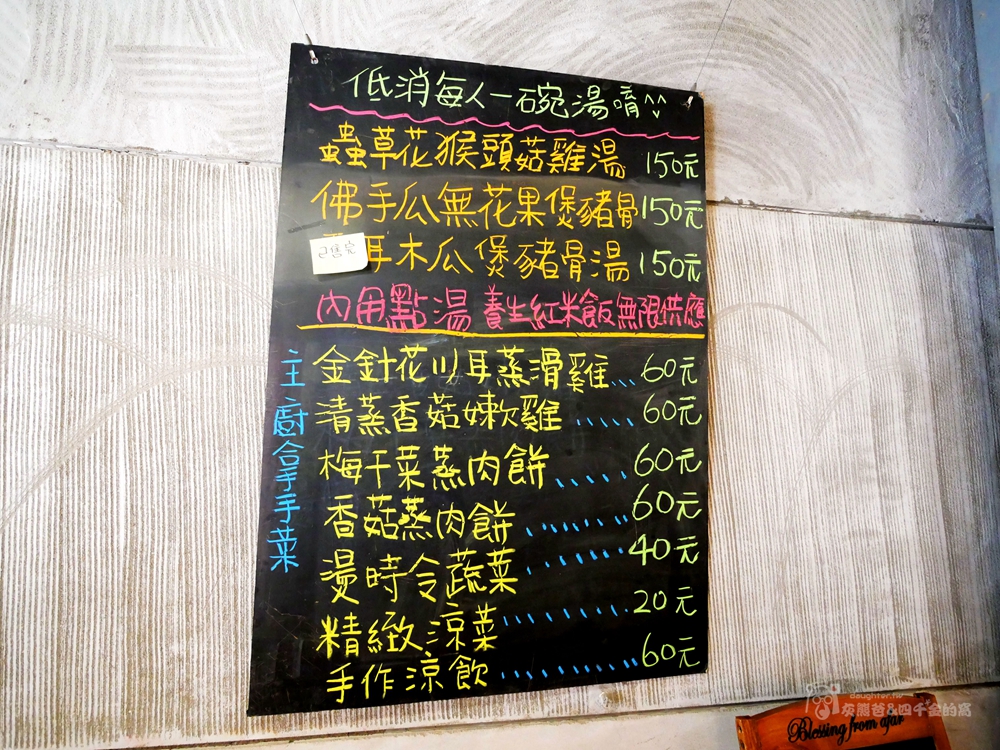 低消每人一碗湯唷^^
蟲草花猴頭菇雞湯 150元
佛手瓜無花果煲豬骨 150元
已售完
耳木瓜煲豬骨湯 150元
內用點湯 養生紅米飯無限供應
主廚合手手菜
金針花川耳蒸滑雞... 60元
清蒸香菇嫩雞..... 60元
梅干菜蒸肉餅..... 60元
香菇蒸肉餅....... 60元
燙時令蔬菜....... 40元
精緻涼菜........ 20元
手作涼飲........ 60元
daughter.tw
灰熊爸&四千金的窩
Blessing from afar